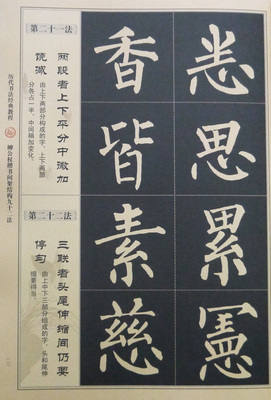 思
香
皆
第二十一法
两段者上下平分中微加
饶减
由上下两部分构成的字，上下两部
分各占一半，中间稍加变化。
累
憲
素
慈
第二十二法
三联者头尾伸缩间仍要
停匀
由上中下三部分组成的字，头和尾伸
缩要得当。
历代书法经典教程
柳公权楷书间架结构九十二法